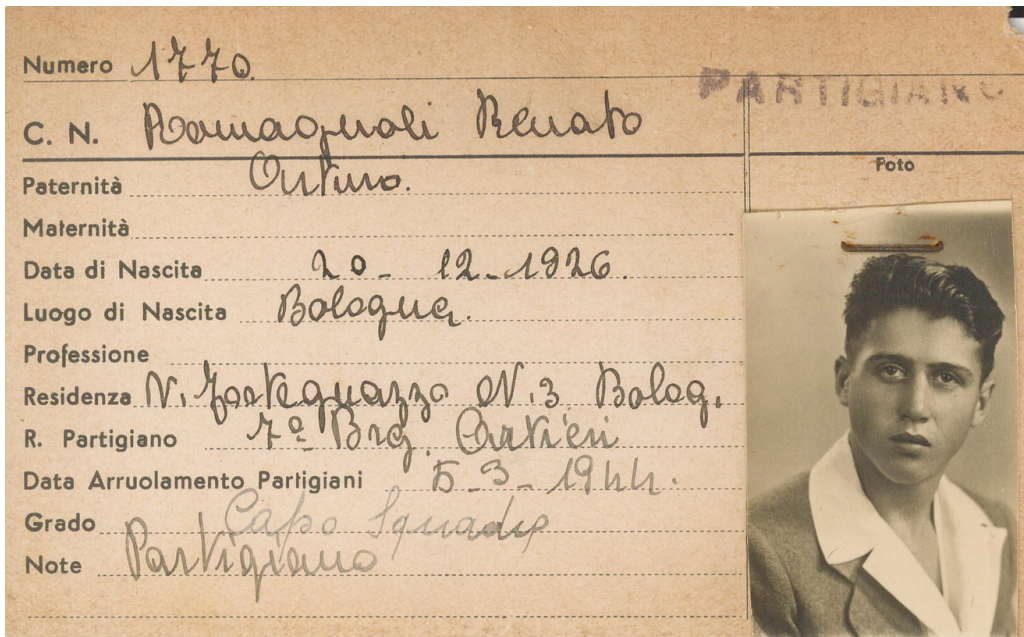 Numero 1770.
PARTIGIANO
C. N. Romagnoli Renato
Foto
Paternità Arturo.
Maternità
Data di Nascita 20 - 12 - 1926.
Luogo di Nascita Bologna.
Professione
Residenza V. N. 3 Bolog.
R. Partigiano 7º Brg.
Data Arruolamento Partigiani 5 - 3 - 1944.
Grado Capo Squadra
Note Partigiano